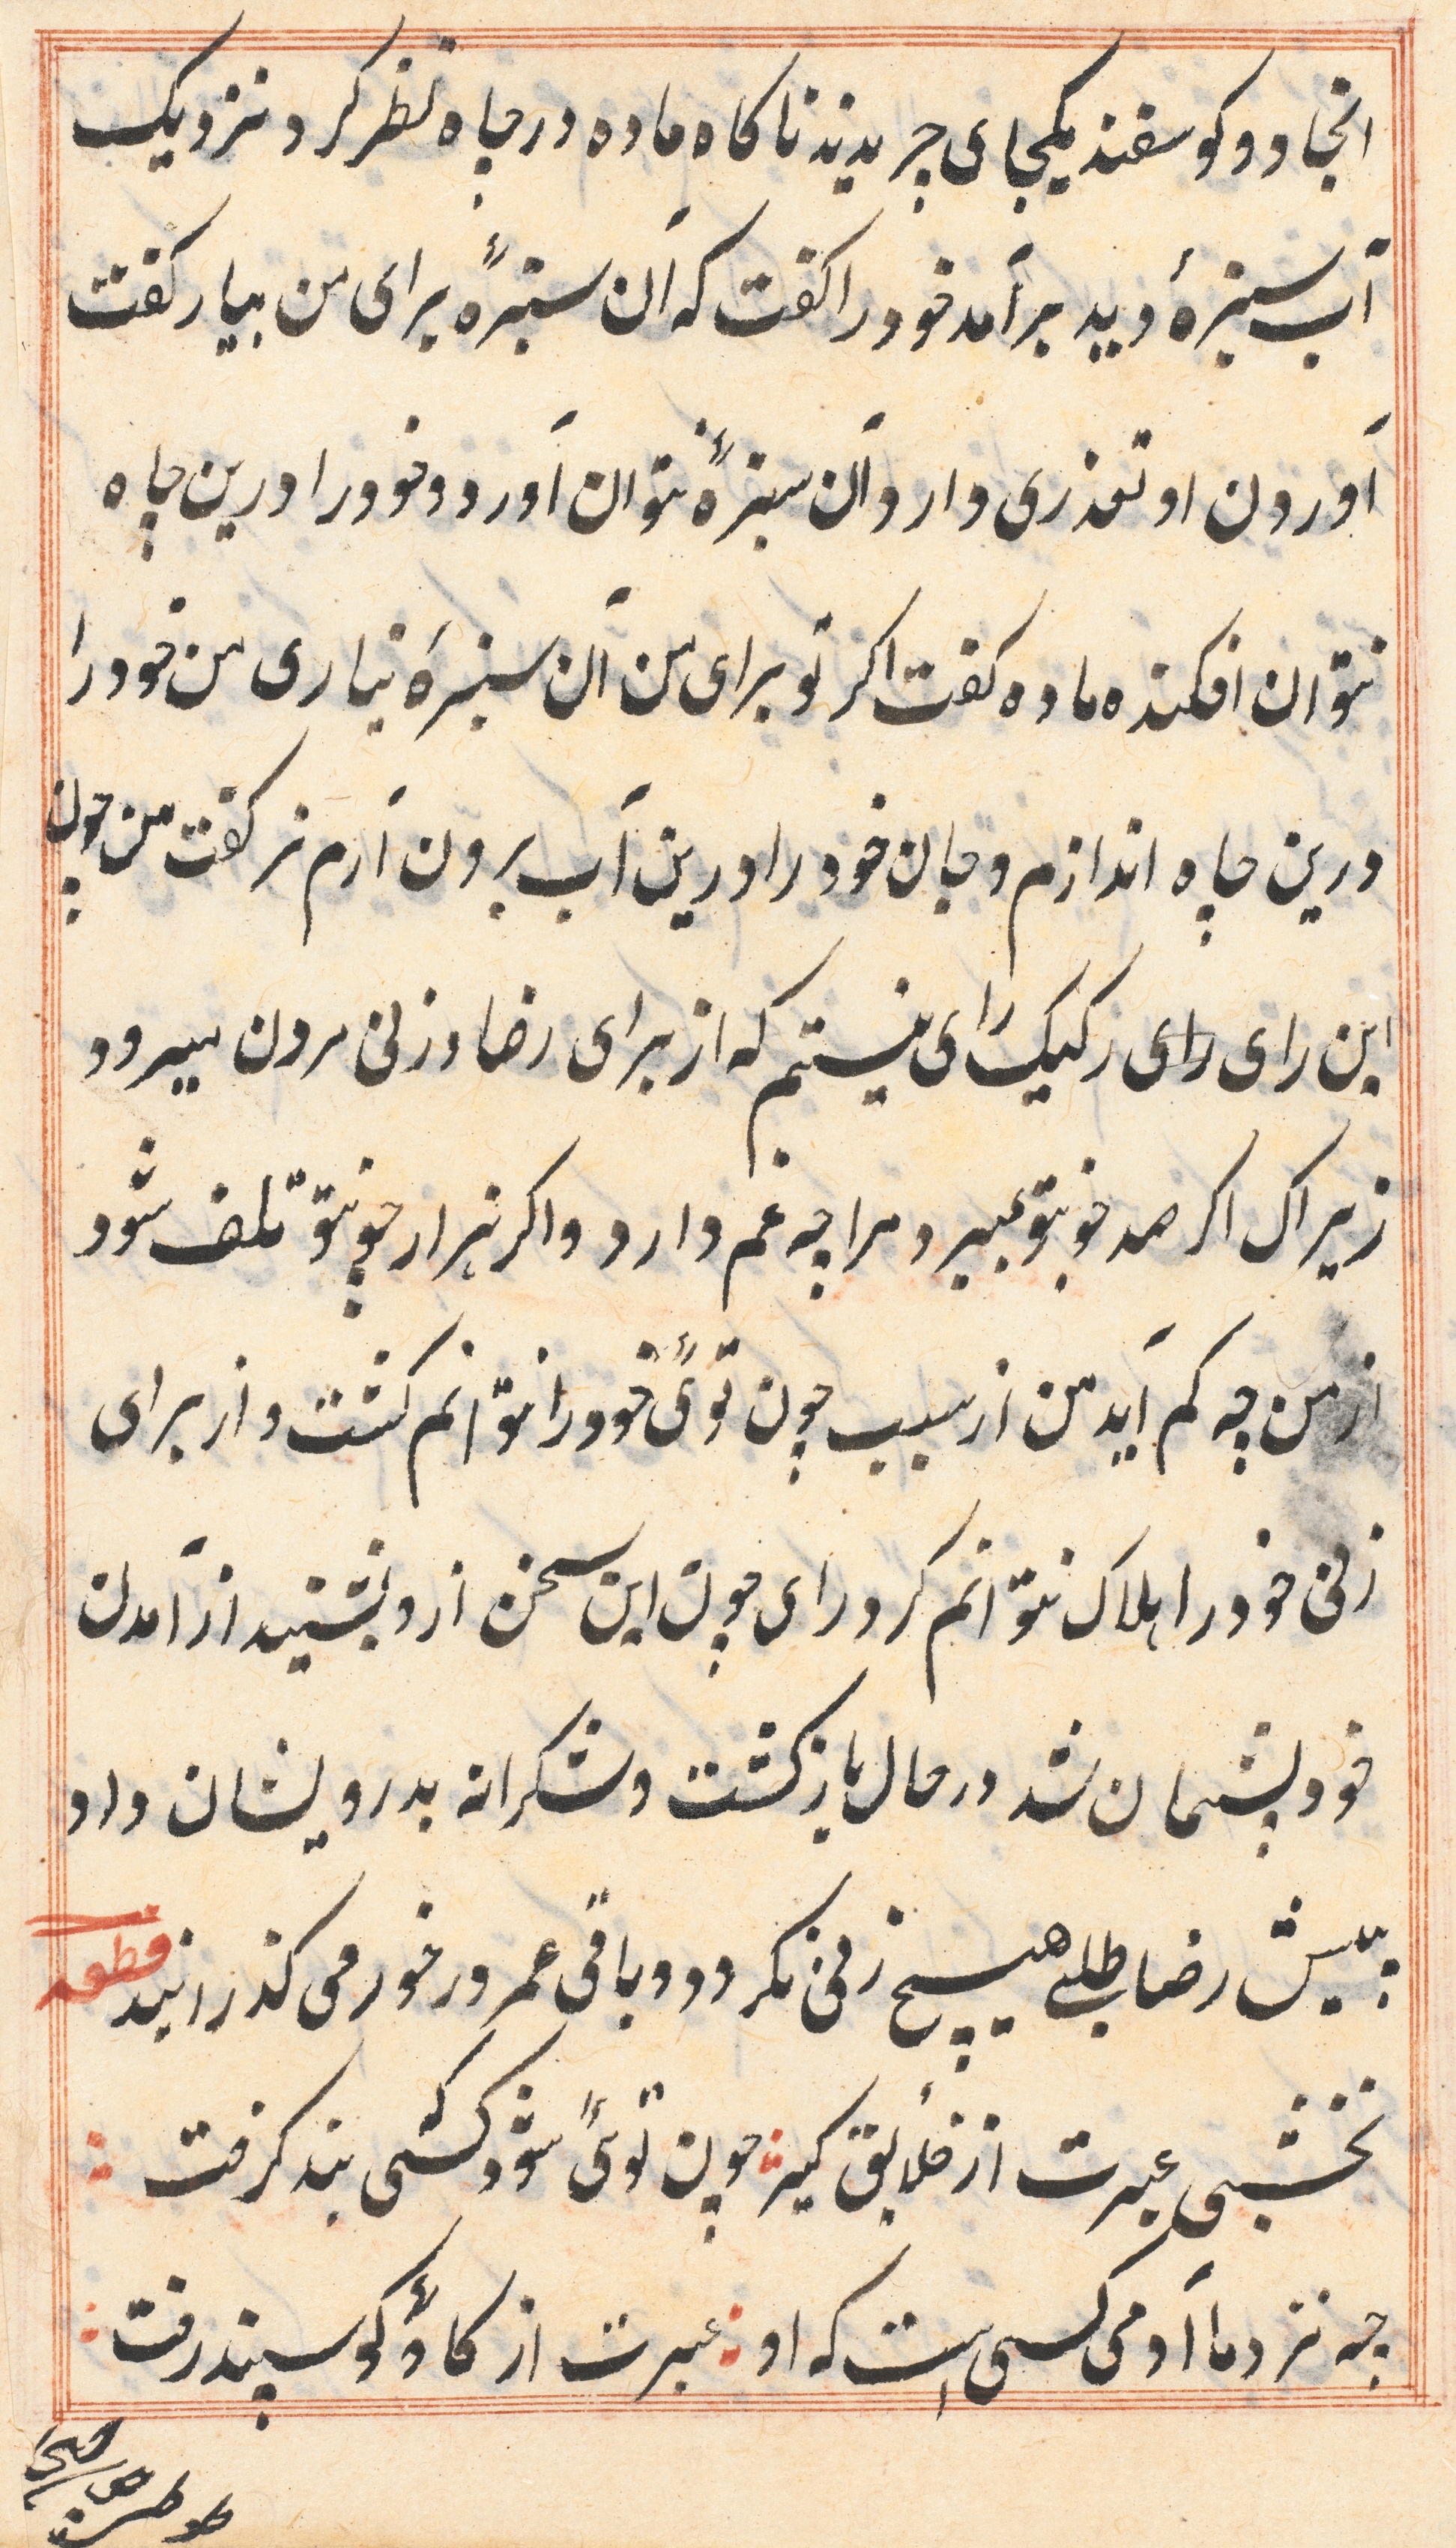 انجا دو کوسفند یکجای چریدند ناکاه ماده در چاه نظر کرد نزدیک
آب سبزهٔ دید بر آمد خود را کفت که آن سبزهٔ برای من بیار کفت
آوردن او تعذری دارد آن سبزهٔ نتوان آورد و خود را درین چاه
نتوان افکنده ماده کفت اکر تو برای من آن سبزهٔ نیاری من خود را
درین چاه اندازم و جان خود را درین آب برون آرم نر کفت من چون
این رای رای رکیک رای نیستم که از برای رضاء زنی برون میرود
زیراک اکر صد چو تو بمیرد مرا چه غم دارد و اکر هزار چو تو تلف شود
از من چه کم آید من از سبب چون توئی خود را نتوانم کشت و از برای
زنی خود را هلاک نتوانم کرد رای چون این سخن ازو بشنید از آمدن
خود پشیمان شد در حال باز کشت و شکرانه بدرویشان داد
بیش رضا طلبے هیچ زنی نکرد و باقی عمر در خورمی کذرانید قطعه
نخشبی عبرت از خلایق کیر چون توئی شود کسی پند کرفت
چه نزد ما آدمی کسی است که او عبرت از کاؤ کوسپند رفت